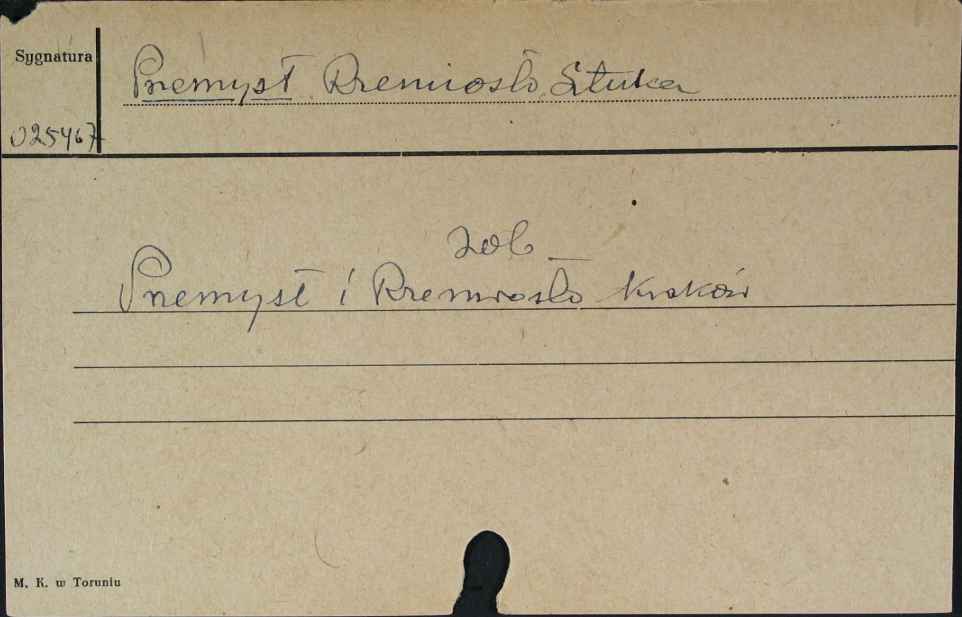 Sygnatura
Przemysł Rzemiosło Sztuka
025467
zob
Przemysł i Rzemiosło Kraków
M. K. w Toruniu